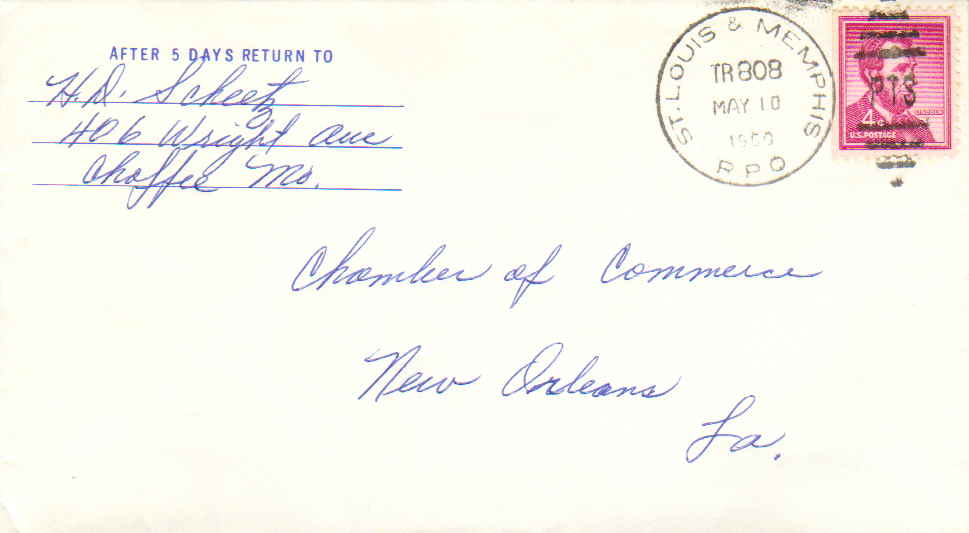 AFTER 5 DAYS RETURN TO
H.D. Scheetz
406 Wright Ave
Chaffee Mo.
ST. LOUIS & MEMPHIS
TR 808
MAY 10
R P O
PTS
LINCOLN
4¢
U.S. POSTAGE
Chamber of Commerce
New Orleans
La.